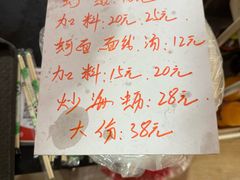 加料:20元.25元
蚵面.面线.汤:12元
加料:15元.20元
炒海蛎:28元
大份:38元